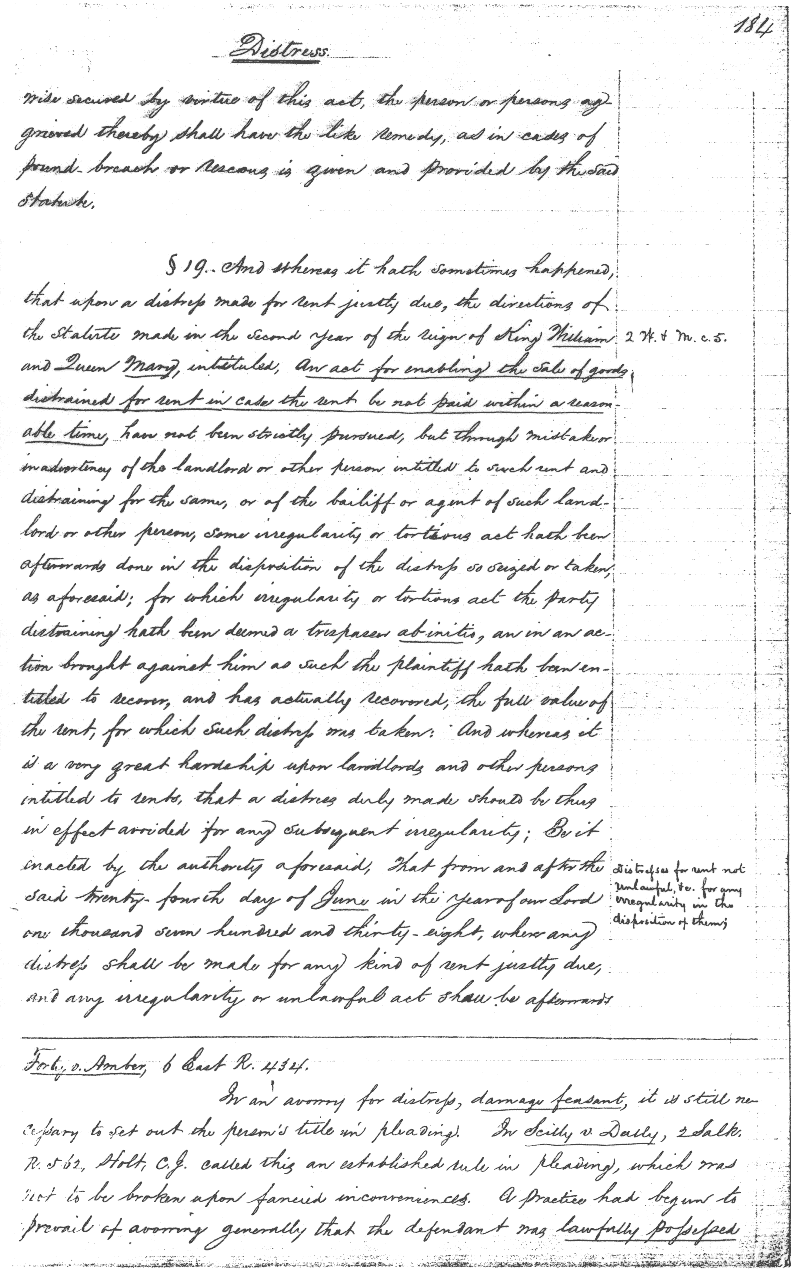 184
Distress.
wise secured by virtue of this act, the person or persons ag-
grieved thereby shall have the like remedy, as in cases of
pound-breach or rescous is given and provided by the said
statute.
§ 19. And whereas it hath sometimes happened,
that upon a distress made for rent justly due, the directions of
the statute made in the second year of the reign of King William
2 W. & M. c. 5.
and Queen Mary, intituled, An act for enabling the sale of goods
distrained for rent in case the rent be not paid within a reason-
able time, have not been strictly pursued, but through mistake or
inadvertency of the landlord or other person intitled to such rent and
distraining for the same, or of the bailiff or agent of such land-
lord or other person, some irregularity or tortious act hath been
afterwards done in the disposition of the distress so seized or taken,
as aforesaid; for which irregularity or tortious act the party
distraining hath been deemed a trespasser ab initio, an in an ac-
tion brought against him as such the plaintiff hath been en-
titled to recover, and has actually recovered, the full value of
the rent, for which such distress was taken: And whereas it
is a very great hardship upon landlords and other persons
intitled to rents, that a distress duly made should be thus
in effect avoided for any subsequent irregularity; Be it
enacted by the authority aforesaid, That from and after the
said twenty-fourth day of June in the year of our Lord
one thousand seven hundred and thirty-eight, where any
distress shall be made for any kind of rent justly due,
and any irregularity or unlawful act shall be afterwards
Distresses for rent not
unlawful, &c. for any
irregularity in the
disposition of them;
Forty v. Amber, 6 East R. 434.
In an avowry for distress, damage feasant, it is still ne-
cessary to set out the person's title in pleading. In Scilly v Dally, 2 Salk.
R. 562, Holt, C.J. called this an established rule in pleading, which was
not to be broken upon fancied inconveniences. A practice had begun to
prevail of avowing generally that the defendant was lawfully possessed